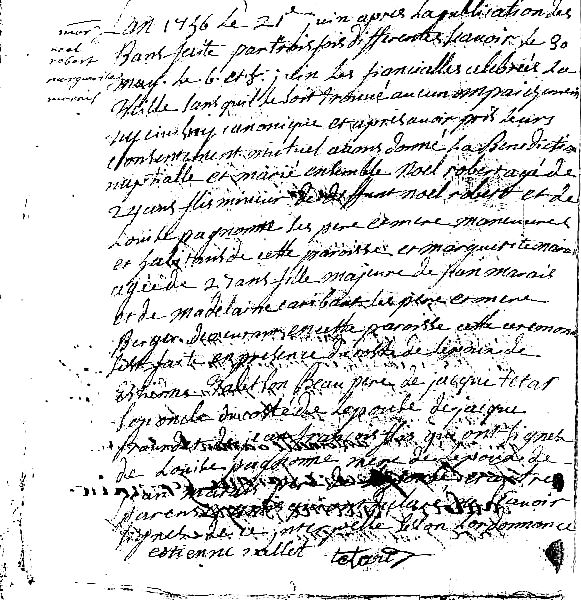 mar.
noel
robert
marguerite
marais
L'an 1756 le 21e juin apres la publication des
Bans faite par trois fois differentes scavoir le 30
may. le 6 et juin les fiancailles celebreés La
Veille sans quil se soit trouué aucun empaichement
ny civil ny canonique et apres avoir pris leurs
consentement mutuel avons donné La Benediction
nuptialle et marié ensemble Noel robert agé de
24 ans fils mineur de deffunt noel robert et de
Louise pagnonne ses pere et mere manoeuvres
et habitans de cette paroisse et marguerite marais
agée de 27 ans fille majeure de jean marais
et de madelaine ses pere et mere
Berger demeurant en cette paroisse cette ceremonie
sest faite en presence du costé de lepoux de
Estienne Beau pere de jacque tetar
son oncle du costé de Lepouse de jacque
et de jean qui ont signez
de Louise pagnonne mere de lepoux de
jean marais et autres
parens scavoir
signer de ce interpellé selon Lordonnance
estienne vallet tetard